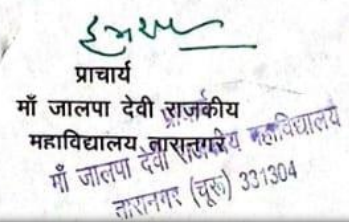 प्राचार्य
माँ जालपा देवी राजकीय
महाविद्यालय तारानगर
माँ जालपा देवी राजकीय महाविद्यालय
तारानगर (चूरू) 331304